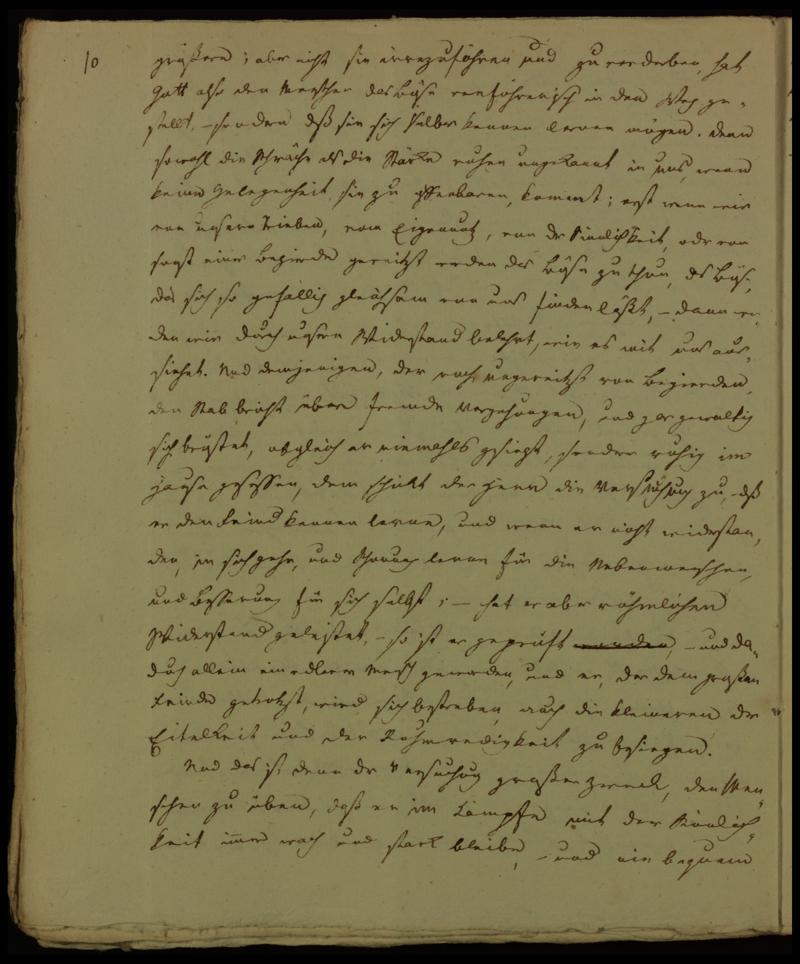 10
größern; aber nicht sie irrezuführen und zu verderben, hat
Gott also den Menschen das Böse verführerisch in den Weg ge-
stellt, – sondern daß sie sich selber kennen lernen mögen. Denn
sowohl die Schwäche als die Stärke ruhen ungekannt in uns, wenn
keine Gelegenheit, sie zu offenbaren, kommt; erst wenn wir
von unsern Trieben, vom Eigennutz, von der Sinnlichkeit, oder von
sonst einer Begierde gereitzt werden das Böse zu thun, das Böse,
das sich so gefällig gleichsam von uns finden läßt, – dann wer-
den wir durch unsern Widerstand belehrt, wie es mit uns aus-
siehet. Und demjenigen, der noch ungereitzt von Begierden,
den Stab bricht über fremde Vergehungen, und gar gewaltig
sich brüstet, obgleich er niemahls gesiegt, sondern ruhig im
Hause gesessen, dem schickt der Herr die Versuchung zu, daß
er den Feind kennen lerne, und wenn er nicht widerstan-
den, in sich gehe, und Schonung lerne für die Nebenmenschen,
und Besserung für sich selbst; – hat er aber rühmlichen
Widerstand geleistet, – so ist er geprüft worden, – und da-
durch allein ein edlerer Mensch geworden, und er, der dem großen
Feinde getrotzt, wird sich bestreben, auch die kleineren der
Eitelkeit und der Ruhmredigkeit zu besiegen.
Und das ist denn der Versuchung großer Zweck, den Men-
schen zu üben, daß er im Kampfe mit der Sinnlich-
keit immer wach und stark bleibe, – und ein bequem